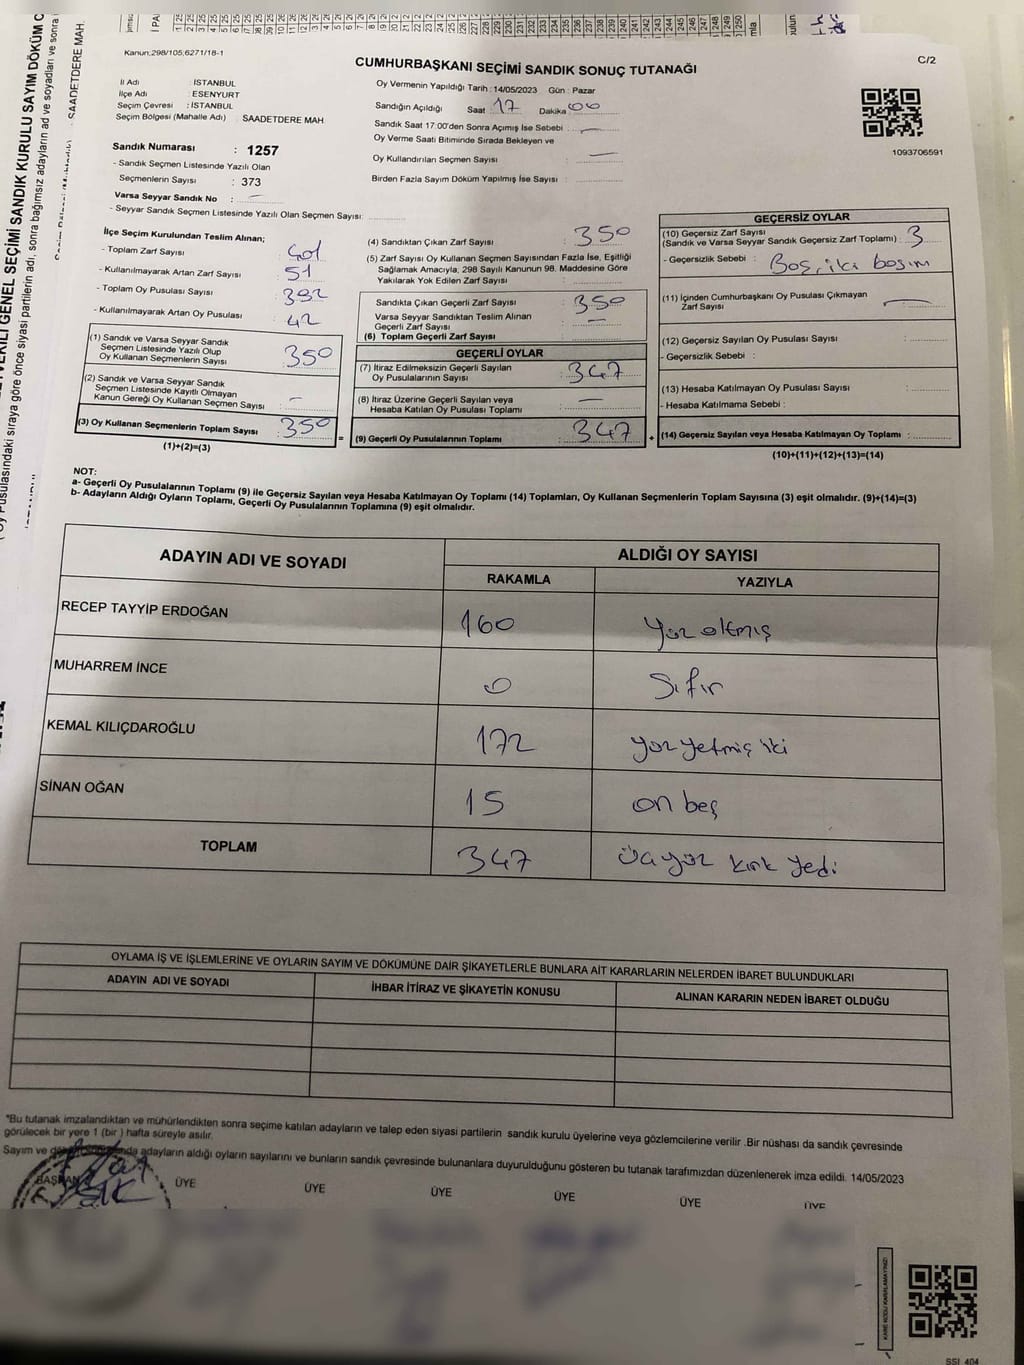 Kanun;298/105;6271/18-1
CUMHURBAŞKANI SEÇİMİ SANDIK SONUÇ TUTANAĞI
C/2
İl Adı : İSTANBUL
İlçe Adı : ESENYURT
Seçim Çevresi : İSTANBUL
Seçim Bölgesi (Mahalle Adı) : SAADETDERE MAH
Sandık Numarası : 1257
- Sandık Seçmen Listesinde Yazılı Olan
Seçmenlerin Sayısı : 373
Varsa Seyyar Sandık No : —
- Seyyar Sandık Seçmen Listesinde Yazılı Olan Seçmen Sayısı:
Oy Vermenin Yapıldığı Tarih : 14/05/2023 Gün : Pazar
Sandığın Açıldığı Saat 17 Dakika 00
Sandık Saat 17.00'den Sonra Açımış İse Sebebi : —
Oy Verme Saati Bitiminde Sırada Bekleyen ve
Oy Kullandırılan Seçmen Sayısı : —
Birden Fazla Sayım Döküm Yapılmış İse Sayısı :
1093706591
İlçe Seçim Kurulundan Teslim Alınan;
- Toplam Zarf Sayısı : 401
- Kullanılmayarak Artan Zarf Sayısı : 51
- Toplam Oy Pusulası Sayısı : 392
- Kullanılmayarak Artan Oy Pusulası : 42
(1) Sandık ve Varsa Seyyar Sandık
Seçmen Listesinde Yazılı Olup
Oy Kullanan Seçmenlerin Sayısı : 350
(2) Sandık ve Varsa Seyyar Sandık
Seçmen Listesinde Kayıtlı Olmayan
Kanun Gereği Oy Kullanan Seçmen Sayısı : —
(3) Oy Kullanan Seçmenlerin Toplam Sayısı : 350
(1)+(2)=(3)
(4) Sandıktan Çıkan Zarf Sayısı : 350
(5) Zarf Sayısı Oy Kullanan Seçmen Sayısından Fazla İse, Eşitliği
Sağlamak Amacıyla, 298 Sayılı Kanunun 98. Maddesine Göre
Yakılarak Yok Edilen Zarf Sayısı :
Sandıkta Çıkan Geçerli Zarf Sayısı : 350
Varsa Seyyar Sandıktan Teslim Alınan
Geçerli Zarf Sayısı : —
(6) Toplam Geçerli Zarf Sayısı
GEÇERLİ OYLAR
(7) İtiraz Edilmeksizin Geçerli Sayılan
Oy Pusulalarının Sayısı : 347
(8) İtiraz Üzerine Geçerli Sayılan veya
Hesaba Katılan Oy Pusulası Toplamı : —
= (9) Geçerli Oy Pusulalarının Toplamı : 347 +
GEÇERSİZ OYLAR
(10) Geçersiz Zarf Sayısı
(Sandık ve Varsa Seyyar Sandık Geçersiz Zarf Toplamı) : 3
- Geçersizlik Sebebi : Boş, iki basım
(11) İçinden Cumhurbaşkanı Oy Pusulası Çıkmayan
Zarf Sayısı : —
(12) Geçersiz Sayılan Oy Pusulası Sayısı :
- Geçersizlik Sebebi :
(13) Hesaba Katılmayan Oy Pusulası Sayısı :
- Hesaba Katılmama Sebebi :
(14) Geçersiz Sayılan veya Hesaba Katılmayan Oy Toplamı :
(10)+(11)+(12)+(13)=(14)
NOT:
a- Geçerli Oy Pusulalarının Toplamı (9) ile Geçersiz Sayılan veya Hesaba Katılmayan Oy Toplamı (14) Toplamları, Oy Kullanan Seçmenlerin Toplam Sayısına (3) eşit olmalıdır. (9)+(14)=(3)
b- Adayların Aldığı Oyların Toplamı, Geçerli Oy Pusulalarının Toplamına (9) eşit olmalıdır.
ADAYIN ADI VE SOYADI
ALDIĞI OY SAYISI
RAKAMLA YAZIYLA
RECEP TAYYİP ERDOĞAN 160 Yüz altmış
MUHARREM İNCE 0 Sıfır
KEMAL KILIÇDAROĞLU 172 yüz yetmiş iki
SİNAN OĞAN 15 on beş
TOPLAM 347 üç yüz kırk yedi
OYLAMA İŞ VE İŞLEMLERİNE VE OYLARIN SAYIM VE DÖKÜMÜNE DAİR ŞİKAYETLERLE BUNLARA AİT KARARLARIN NELERDEN İBARET BULUNDUKLARI
ADAYIN ADI VE SOYADI İHBAR İTİRAZ VE ŞİKAYETİN KONUSU ALINAN KARARIN NEDEN İBARET OLDUĞU
*Bu tutanak imzalandıktan ve mühürlendikten sonra seçime katılan adayların ve talep eden siyasi partilerin sandık kurulu üyelerine veya gözlemcilerine verilir .Bir nüshası da sandık çevresinde
görülecek bir yere 1 (bir ) hafta süreyle asılır.
Sayım ve adayların aldığı oyların sayılarını ve bunların sandık çevresinde bulunanlara duyurulduğunu gösteren bu tutanak tarafımızdan düzenlenerek imza edildi. 14/05/2023
BAŞKAN ÜYE ÜYE ÜYE ÜYE ÜYE ÜYE
KARE KODU KARALAMAYINIZ!
SSI_404